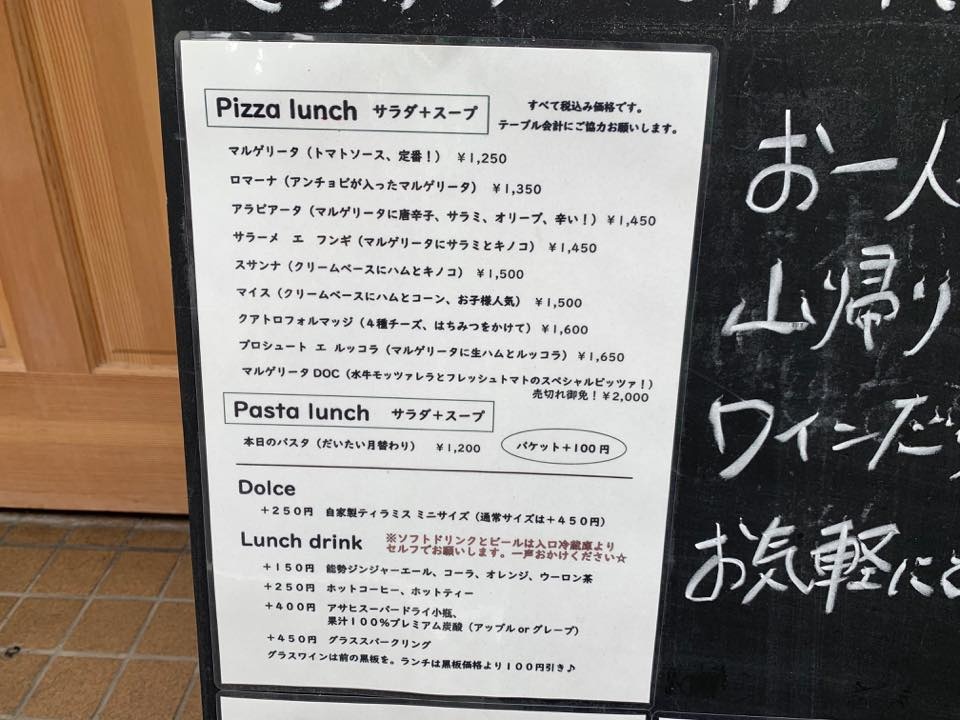 Pizza lunch サラダ+スープ
すべて税込み価格です。
テーブル会計にご協力お願いします。
マルゲリータ(トマトソース、定番!) ¥1,250
ロマーナ(アンチョビが入ったマルゲリータ) ¥1,350
アラビアータ(マルゲリータに唐辛子、サラミ、オリーブ、辛い!) ¥1,450
サラーメ エ フンギ(マルゲリータにサラミとキノコ) ¥1,450
スサンナ(クリームベースにハムとキノコ) ¥1,500
マイス(クリームベースにハムとコーン、お子様人気) ¥1,500
クアトロフォルマッジ(4種チーズ、はちみつをかけて) ¥1,600
プロシュート エ ルッコラ(マルゲリータに生ハムとルッコラ) ¥1,650
マルゲリータDOC(水牛モッツァレラとフレッシュトマトのスペシャルピッツァ!)
売切れ御免!¥2,000
Pasta lunch サラダ+スープ
本日のパスタ(だいたい月替わり) ¥1,200
バケット+100円
Dolce
+250円 自家製ティラミス ミニサイズ(通常サイズは+450円)
Lunch drink
※ソフトドリンクとビールは入口冷蔵庫より
セルフでお願いします。一声おかけください☆
+150円 能勢ジンジャーエール、コーラ、オレンジ、ウーロン茶
+250円 ホットコーヒー、ホットティー
+400円 アサヒスーパードライ小瓶、
果汁100%プレミアム炭酸(アップルorグレープ)
+450円 グラススパークリング
グラスワインは前の黒板を。ランチは黒板価格より100円引き♪
お一人
山帰り
ワインだ
お気軽に